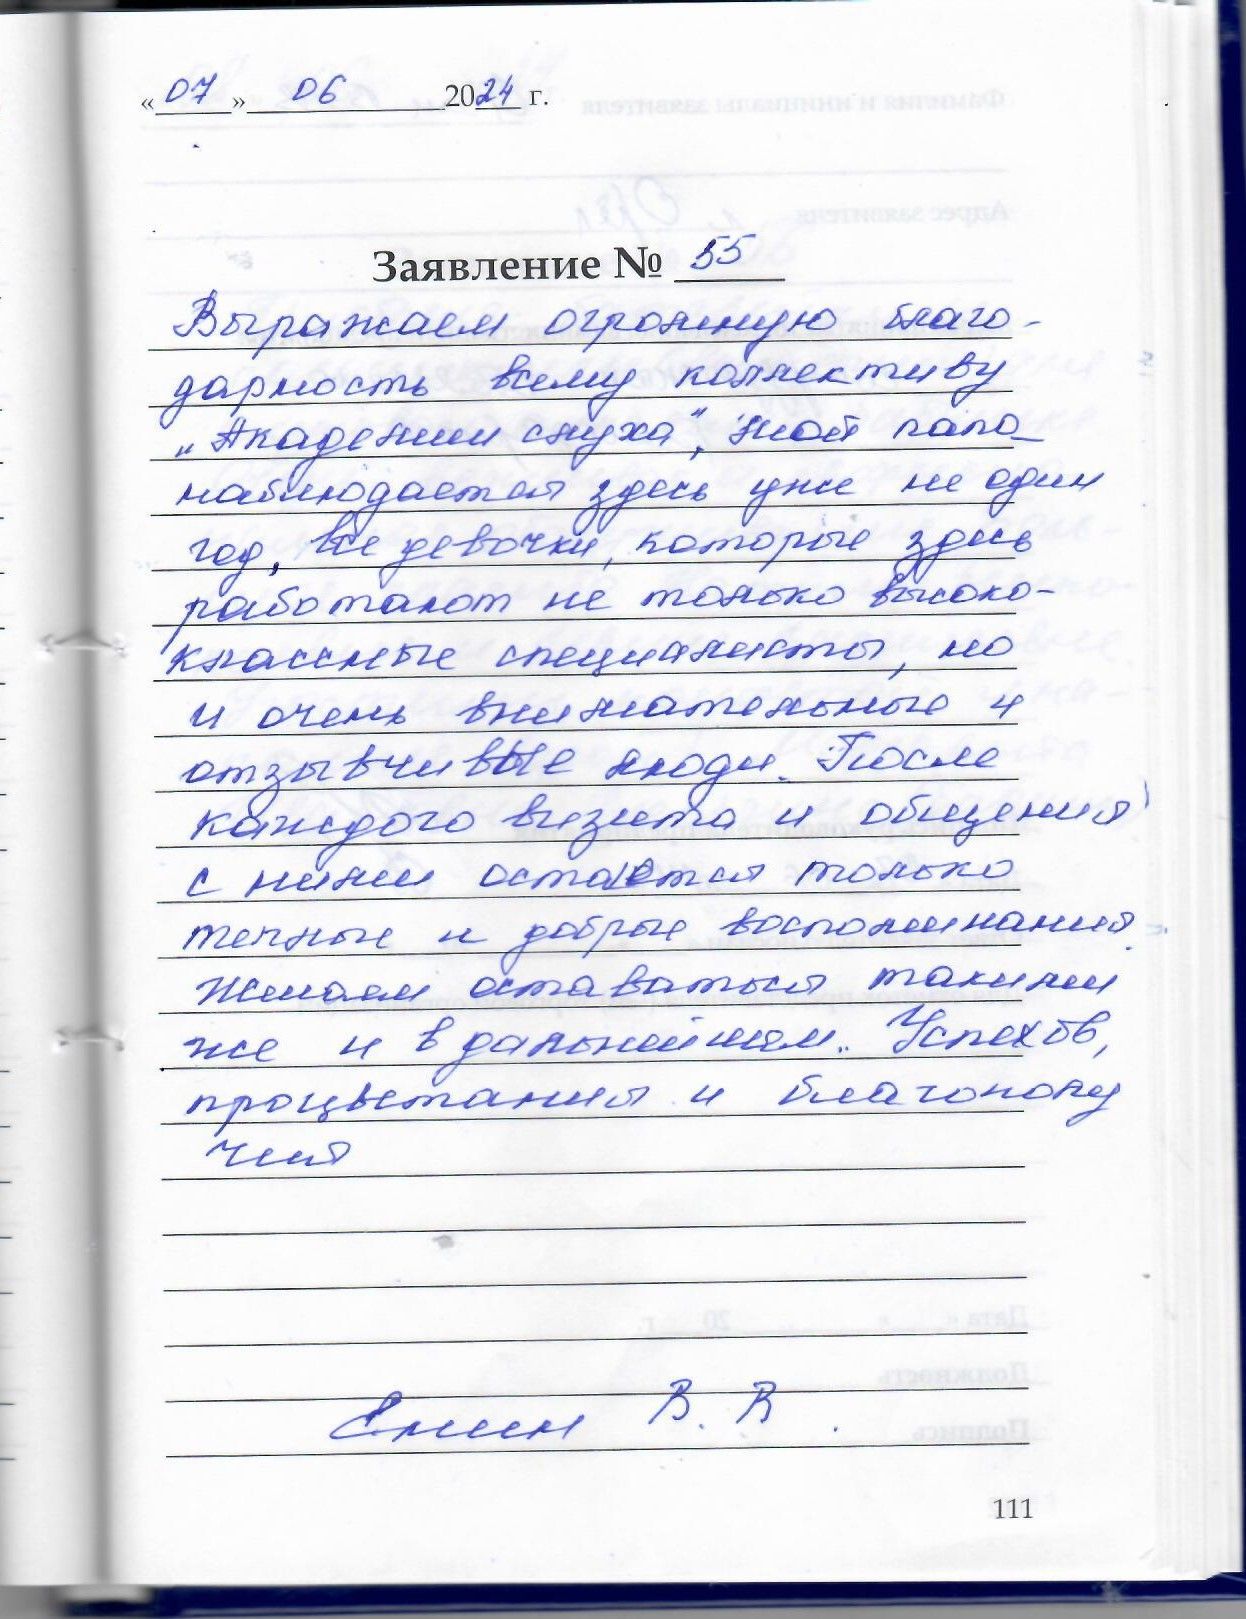 « 07 » 06 2024 г.
Заявление № 55
Выражаем огромную благо-
дарность всему коллективу
„Академии слуха", мой папа
наблюдается здесь уже не один
год, Все девочки, которые здесь
работают не только высоко-
классные специалисты, но
и очень внимательные и
отзывчивые люди. После
каждого визита и общения
с ними остается только
теплые и добрые воспоминания.
Желаем оставаться такими
же и в дальнейшем. Успехов,
процветания и благополу
чия
В. В.
111